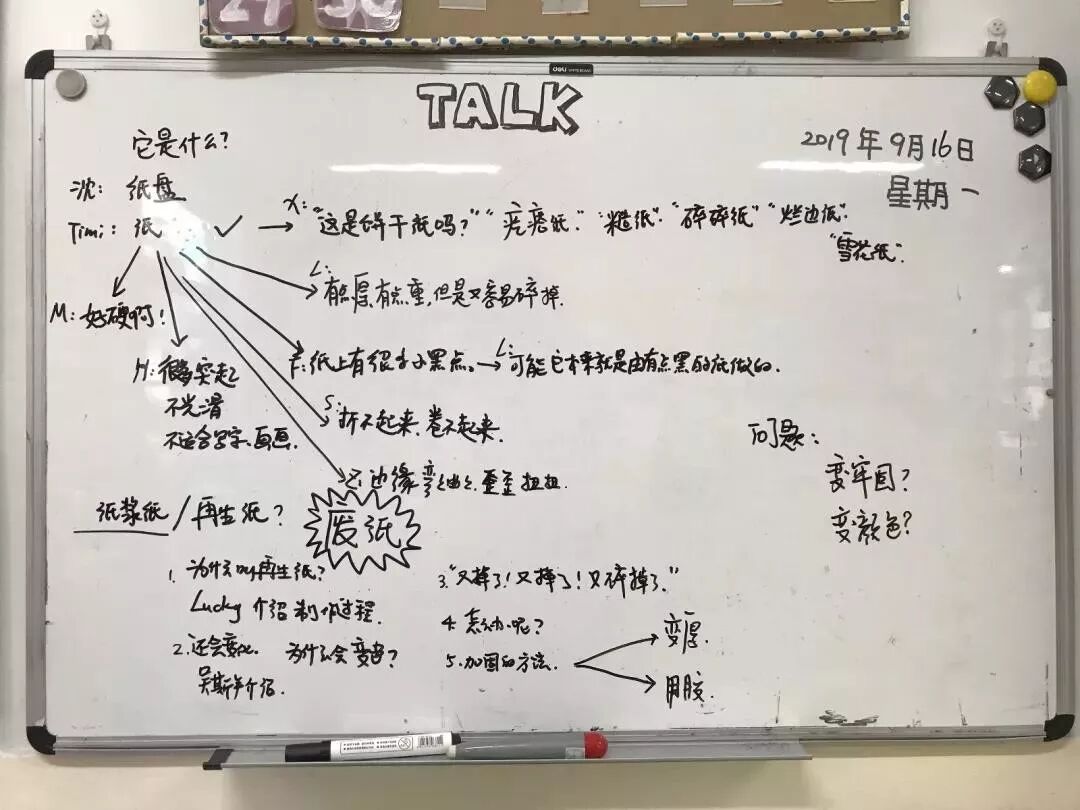 TALK
2019年9月16日
星期一
它是什么?
沈: 纸盘
Timi: 纸 ✓ → X: "这是饼干纸吗?" "疙瘩纸" "糙纸" "碎碎纸" "烂边纸"
"雪花纸"
L: 有点厚、有点重, 但是又容易碎掉.
M: 好硬啊!
F: 纸上有很多小黑点。→ L: 可能它本来就是由有点黑的纸做的.
H: 很多突起
不光滑
不适合写字、画画.
S: 折不起来、卷不起来.
Z: 边缘弯弯曲曲、歪歪扭扭.
问题:
变牢固?
变颜色?
纸浆纸/再生纸?
发纸
1. 为什么叫再生纸?
Lucky 介绍制作过程.
2. 还会变 为什么会变
介绍.
3. "又掉了! 又掉了! 又碎掉了."
4. 怎么办呢?
5. 加固的方法.
变厚.
用胶.